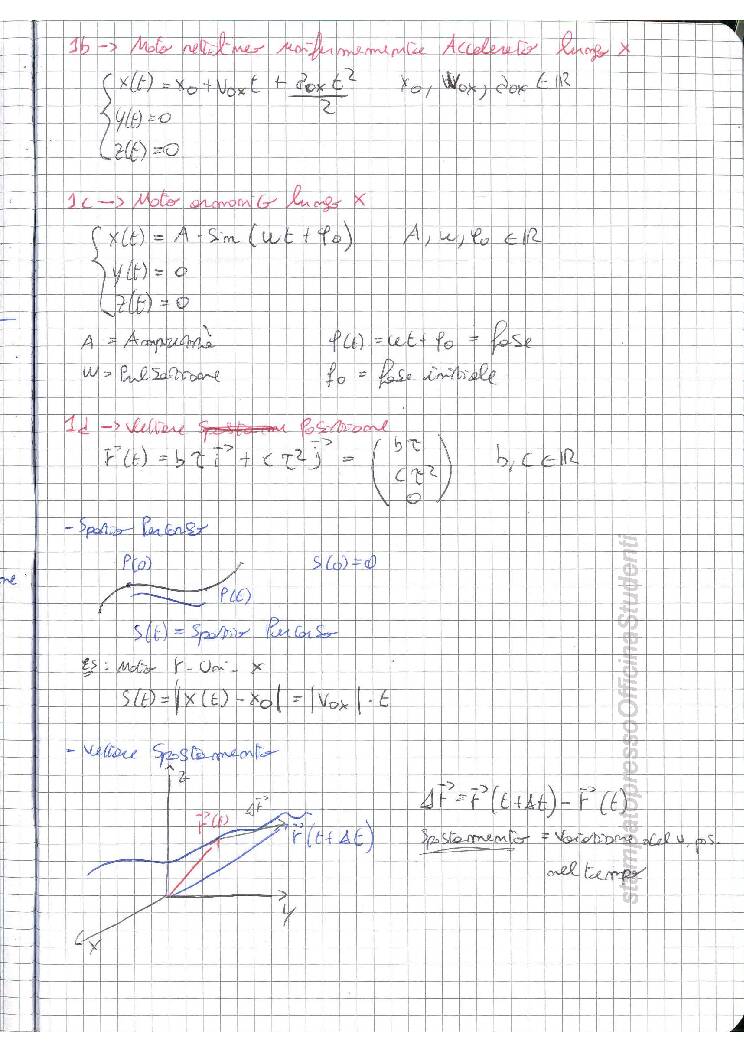 1b → Moto rettilineo uniformemente Accelerato lungo x
x(t) = x₀ + v₀ₓt + a₀ₓt²/2   x₀, v₀ₓ, a₀ₓ ∈ ℝ
y(t) = 0
z(t) = 0
1c → Moto armonico lungo x
x(t) = A · sin (ωt + φ₀)   A, ω, φ₀ ∈ ℝ
y(t) = 0
z(t) = 0
A = Ampiezza   φ(t) = ωt + φ₀ = fase
ω = Pulsazione   φ₀ = fase iniziale
1d → Vettore Posizione
r⃗(t) = bτ i⃗ + cτ² j⃗ = (bτ cτ² 0)   b, c ∈ ℝ
- Spazio Percorso
P(0)   S(0) = 0
P(t)
S(t) = Spazio Percorso
ES: Moto r - Uni - x
S(t) = |x(t) - x₀| = |v₀ₓ| · t
- Vettore Spostamento
z
Δr⃗
r⃗(t)
r⃗(t+Δt)
y
x
Δr⃗ = r⃗(t+Δt) - r⃗(t)
Spostamento = Variazione del v. pos
nel tempo
stampatopressoOfficinaStudenti
ne